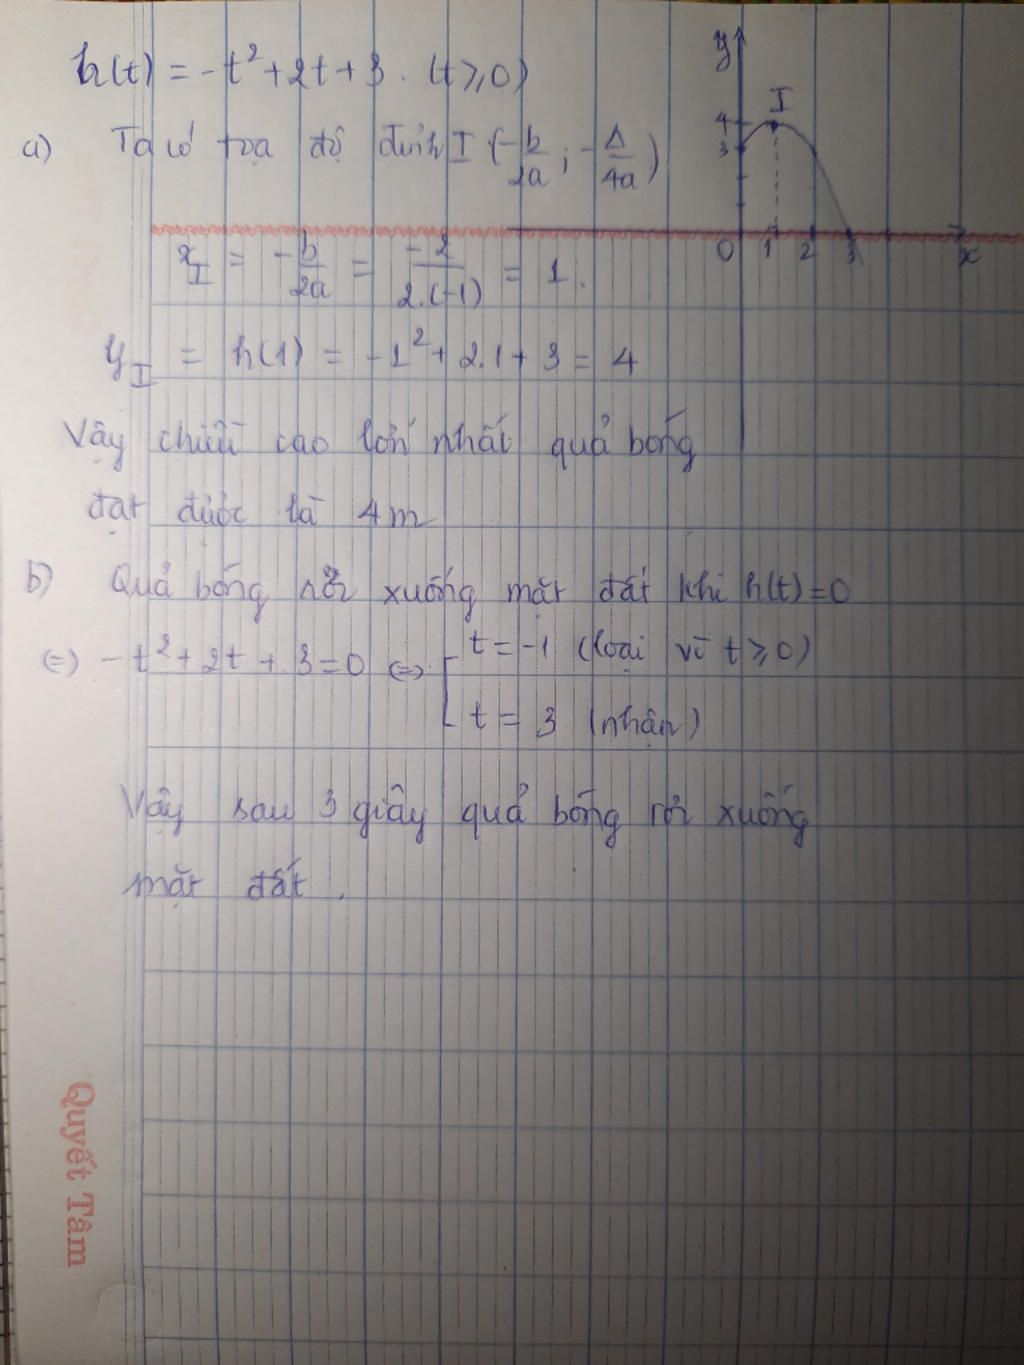 h(t) = -t² + 2t + 3 . (t ≥ 0)
a) Ta có tọa độ đỉnh I (-b/2a ; -Δ/4a)
x_I = -b/2a = -2/2.(-1) = 1.
y_I = h(1) = -1² + 2.1 + 3 = 4
Vậy chiều cao lớn nhất quả bóng
đạt được là 4m
b) Quả bóng rơi xuống mặt đất khi h(t)=0
⇔ -t² + 2t + 3 = 0 ⇔ [ t = -1 (loại vì t ≥ 0)
t = 3 (nhận)
Vậy sau 3 giây quả bóng rơi xuống
mặt đất.
y
I
4
3
0 1 2 3 x
Quyết Tâm